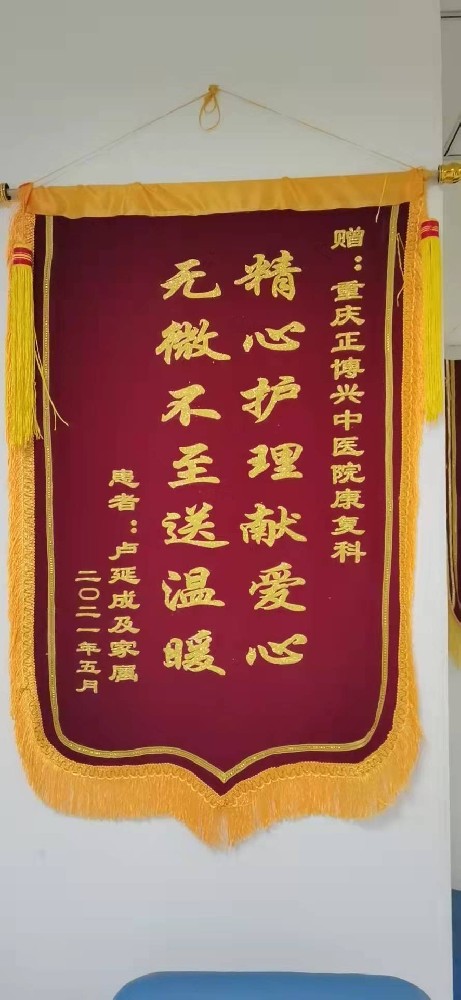 赠：重庆正博兴中医院康复科
精心护理献爱心
无微不至送温暖
患者：卢延成及家属
二〇二一年五月